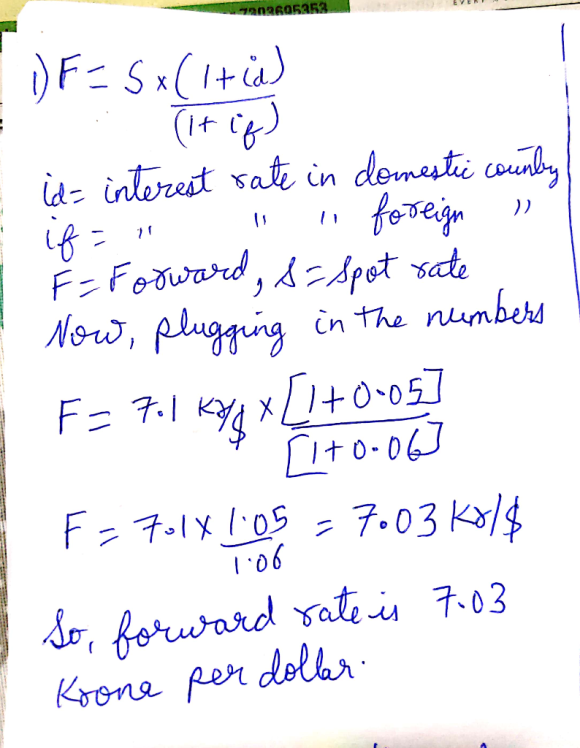 7303695353
1) F = S x (1+id)
(1+if)
id= interest rate in domestic country
if = " " " foreign "
F = Forward, S = Spot rate
Now, plugging in the numbers
F = 7.1 Kr/$ x [1+0.05]
[1+0.06]
F = 7.1 x 1.05 = 7.03 Kr/$
1.06
So, forward rate is 7.03
Krona per dollar.